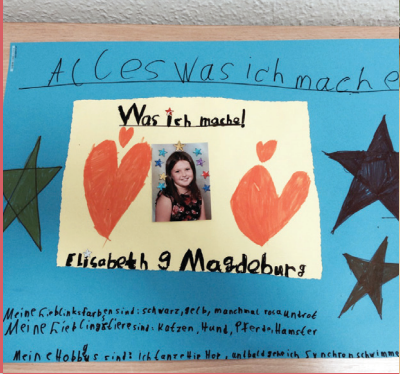 Alles was ich mache
Was ich mache!
Elisabeth 9 Magdeburg
Meine Lieblinksfarben sind: schwarz, gelb, manchmal rosa und rot
Meine Lieblingstiere sind: Katzen, Hund, Pferde, Hamster
Meine Hobbys sind: Ich tanze Hip Hop, und bald gehe ich Synchronschwimme